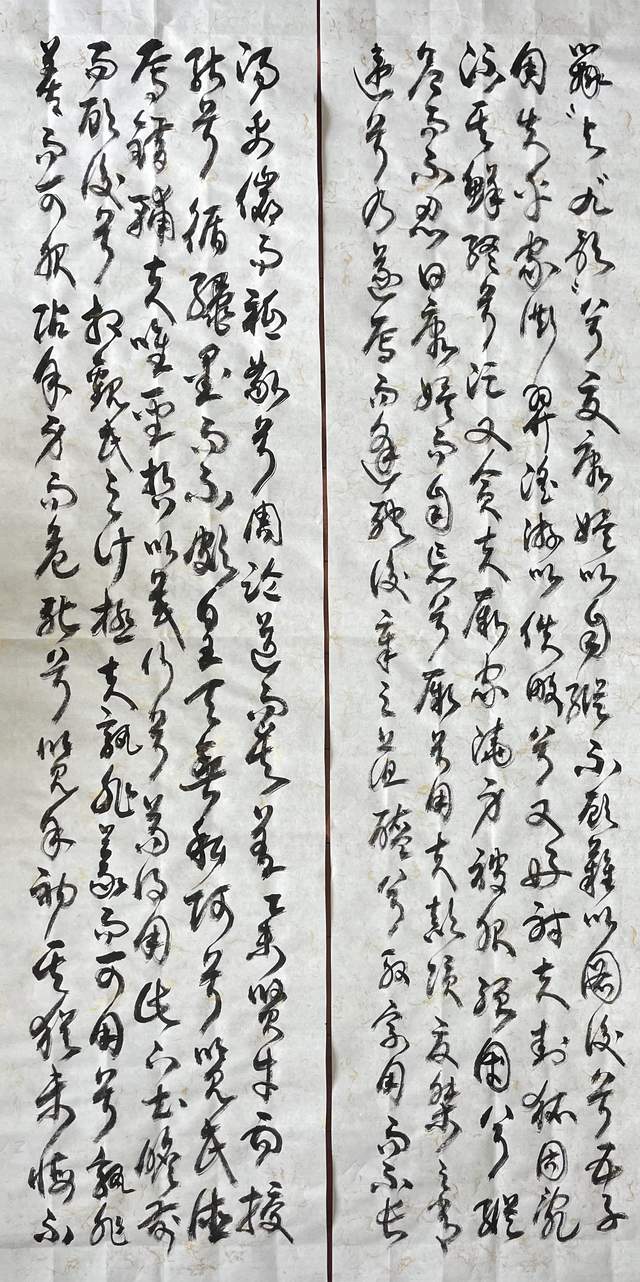 辯与九歌兮夏康娱以自縱不顾難以图後兮五子
用失乎家衖羿淫游以佚畋兮又好射夫封狐固亂
流其鮮終兮浞又貪夫厥家澆身被服强圉兮縱
欲而不忍日康娱而自忘兮厥首用夫颠陨夏桀之常
違兮乃遂焉而逢殃後辛之菹醢兮殷宗用而不长
湯禹儼而祗敬兮周論道而莫差舉賢才而授
能兮循繩墨而不頗皇天無私阿兮覽民德
焉錯輔夫唯聖哲以茂行兮苟得用此下土瞻前
而顧後兮相觀民之計極夫孰非義而可用兮孰非
善而可服阽余身而危死兮覽余初其猶未悔不